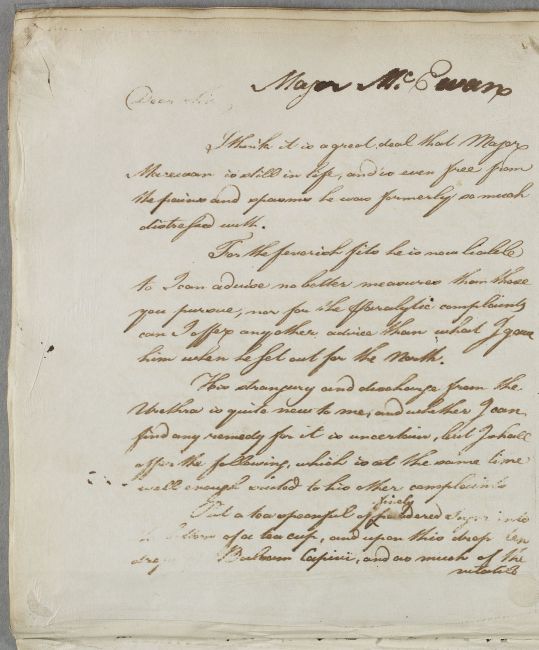 Major McEwan
Dear Sir,
I think it is a great deal that Major
Mcewan is still in life, and is even free from
the pains and spasms he was formerly so much
distressed with.
For the feverish fits he is now liable
to I can advise no better measures than those
you pursue, nor for the Paralytic complaints
can I offer any other advice than what I gave
him when he set out for the North.
His strangury and discharge from the
Urethra is quite new to me, and whether I can
find any remedy for it is uncertain, but I shall
offer the following, which is at the same time
well enough suited to his other complaints
Put a tea spoonful of finely powdered Sugar into
bottom of a tea cup, and upon this drop ten
drops Balsam Capivi, and as much of the
vitriolic